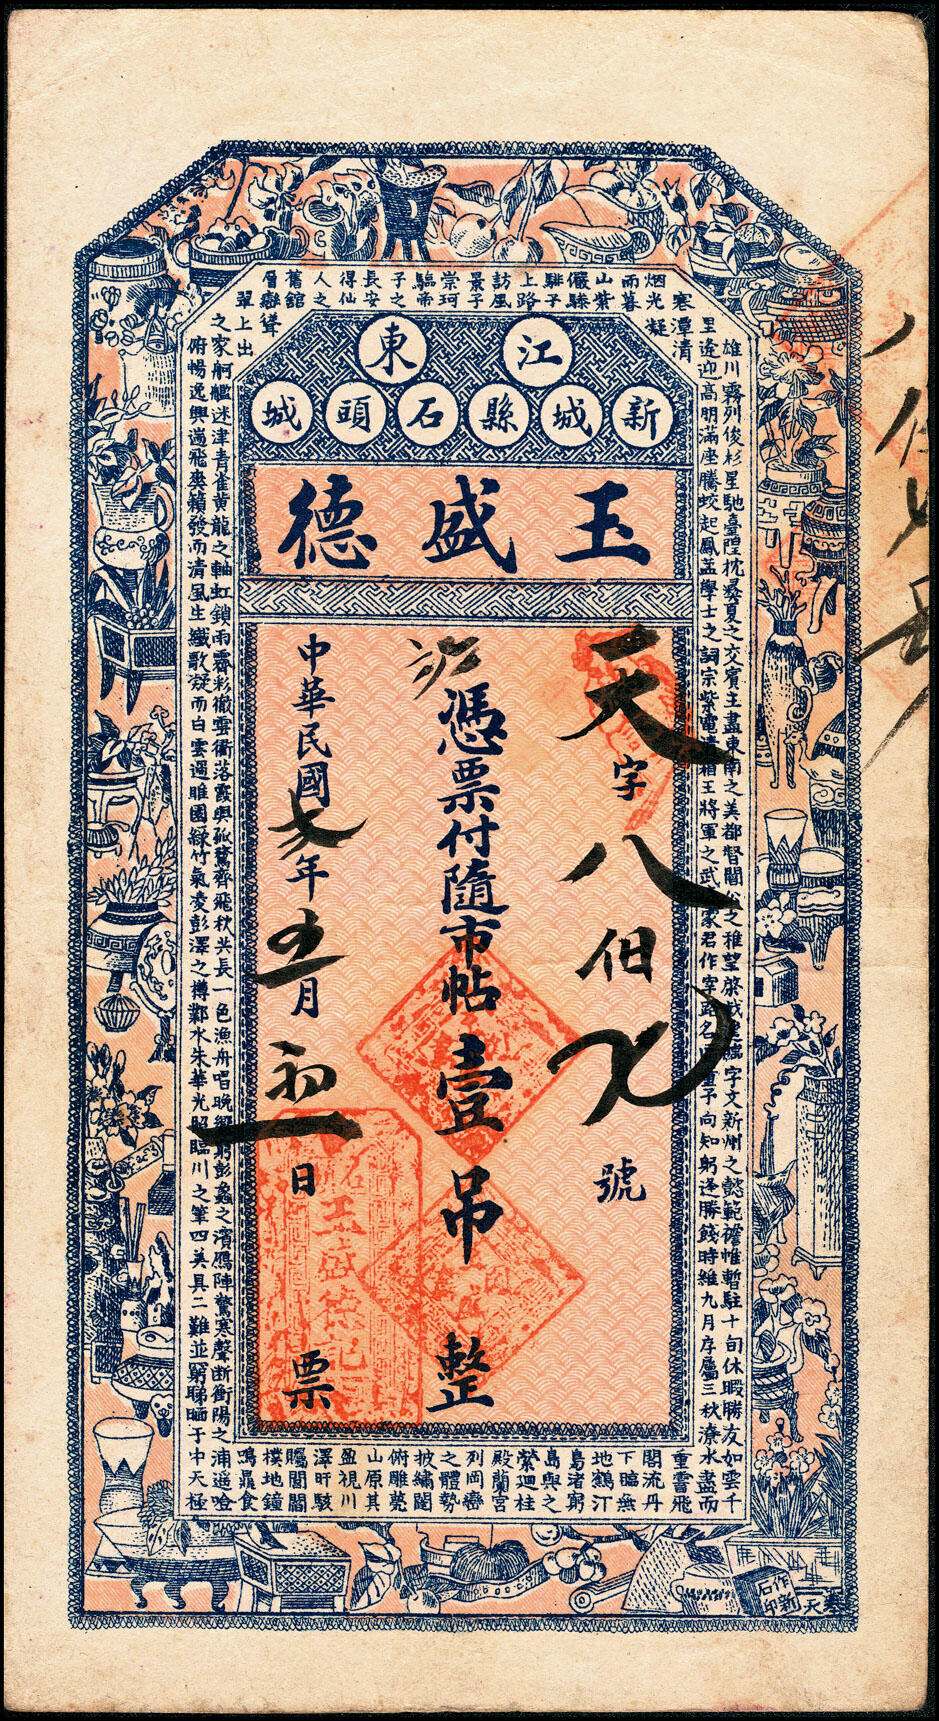 江東
新城縣石頭城
玉盛德
天字八佰九號
憑票付隨市帖壹吊整
中華民國六年五月初一日票
八佰九号
雄川霧列俊杉星馳臺隍枕夷夏之交賓主盡東南之美都督閻公之稚望棨戟遙臨宇文新州之懿範襜帷暫駐十旬休暇勝友如雲千
里逢迎高朋滿座騰蛟起鳳孟學士之詞宗紫電清霜王將軍之武家君作宰路名區童子向知躬逢勝餞時維九月序屬三秋潦水盡而
寒潭清
烟光凝
而暮
山紫
儼驂
騑子
上路
訪風
景子
崇珂
臨帝
子之
長安
得仙
人之
舊館
層巒聳
翠上出
重霄飛
閣流丹
下臨無
地鶴汀
鳧渚窮
島與之
縈迴桂
殿蘭宮
列岡巒
之體勢
披繡闥
俯雕甍
山原其
盈視川
澤盱駭
矚閭閻
樸地鐘
鳴鼎食
之家舸艦迷津青雀黃龍之軸虹銷雨霽彩徹雲衢落霞與孤鶩齊飛秋共長一色漁舟唱晚響窮彭蠡之濱雁陣驚寒聲断衡陽之浦遙唫
俯暢逸興遄飛爽籟發而清風生纖歌凝而白雲遏睢園綠竹氣凌彭澤之樽鄴水朱華光照臨川之筆四美具二難並窮睇眄于中天極
玉盛德記
奉天
作新
石印